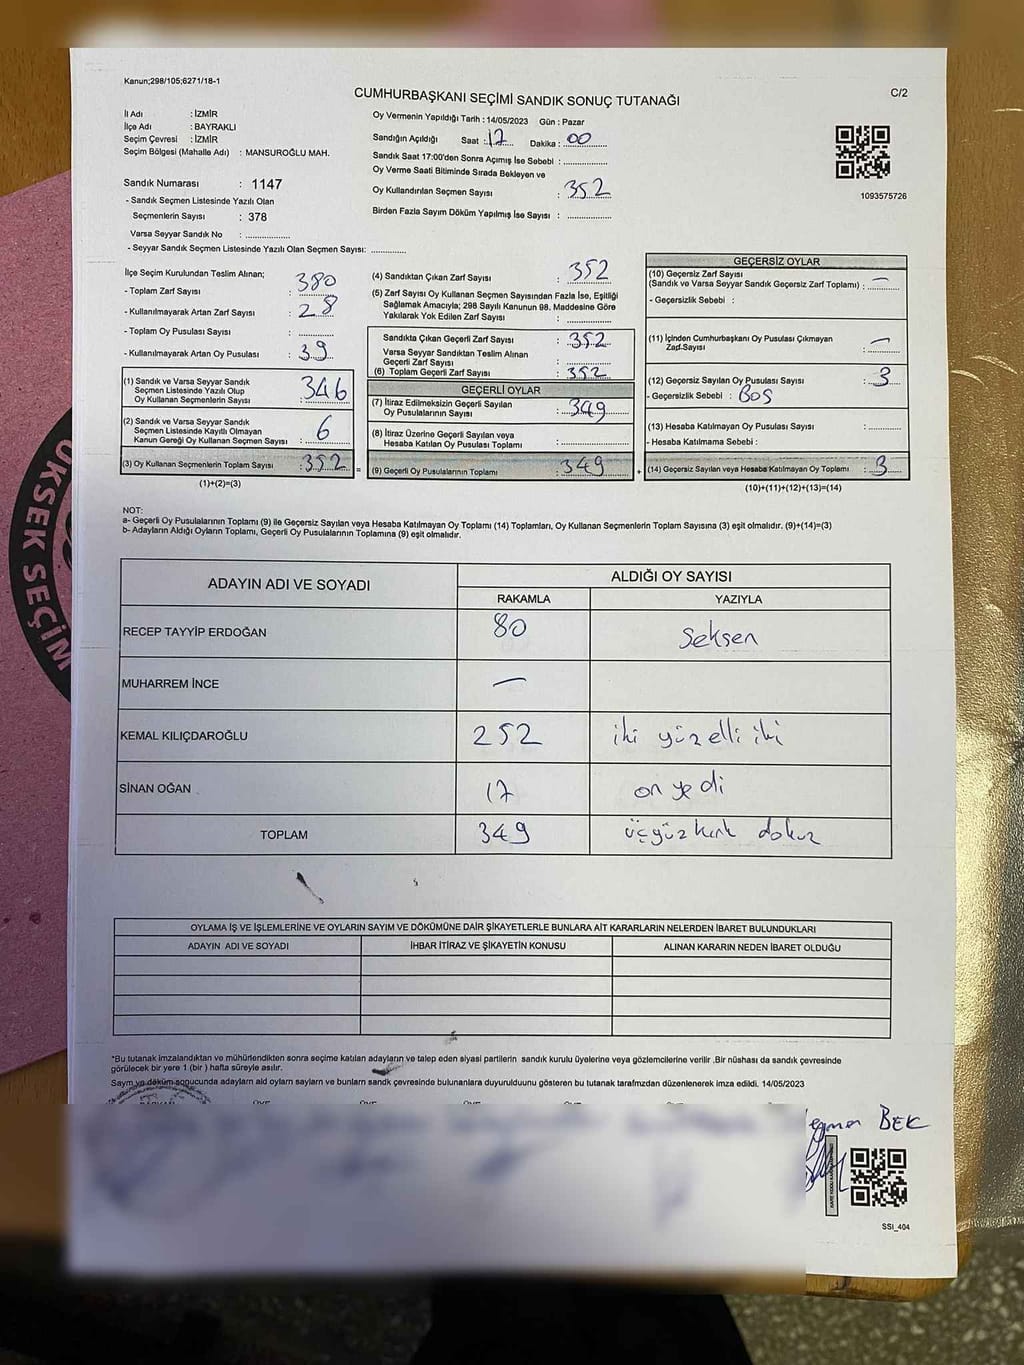 Kanun;298/105;6271/18-1
CUMHURBAŞKANI SEÇİMİ SANDIK SONUÇ TUTANAĞI
C/2
İl Adı : İZMİR
İlçe Adı : BAYRAKLI
Seçim Çevresi : İZMİR
Seçim Bölgesi (Mahalle Adı) : MANSUROĞLU MAH.
Sandık Numarası : 1147
- Sandık Seçmen Listesinde Yazılı Olan
Seçmenlerin Sayısı : 378
Varsa Seyyar Sandık No : ..............
- Seyyar Sandık Seçmen Listesinde Yazılı Olan Seçmen Sayısı: ............
Oy Vermenin Yapıldığı Tarih : 14/05/2023 Gün : Pazar
Sandığın Açıldığı Saat : 17 Dakika : 00
Sandık Saat 17:00'den Sonra Açımış İse Sebebi : ..............
Oy Verme Saati Bitiminde Sırada Bekleyen ve
Oy Kullandırılan Seçmen Sayısı : 352
Birden Fazla Sayım Döküm Yapılmış İse Sayısı : ..............
1093575726
İlçe Seçim Kurulundan Teslim Alınan;
- Toplam Zarf Sayısı : 380
- Kullanılmayarak Artan Zarf Sayısı : 28
- Toplam Oy Pusulası Sayısı : ..........
- Kullanılmayarak Artan Oy Pusulası : 39
(1) Sandık ve Varsa Seyyar Sandık
Seçmen Listesinde Yazılı Olup
Oy Kullanan Seçmenlerin Sayısı : 346
(2) Sandık ve Varsa Seyyar Sandık
Seçmen Listesinde Kayıtlı Olmayan
Kanun Gereği Oy Kullanan Seçmen Sayısı : 6
(3) Oy Kullanan Seçmenlerin Toplam Sayısı : 352
(1)+(2)=(3)
(4) Sandıktan Çıkan Zarf Sayısı : 352
(5) Zarf Sayısı Oy Kullanan Seçmen Sayısından Fazla İse, Eşitliği
Sağlamak Amacıyla; 298 Sayılı Kanunun 98. Maddesine Göre
Yakılarak Yok Edilen Zarf Sayısı : ..............
Sandıkta Çıkan Geçerli Zarf Sayısı : 352
Varsa Seyyar Sandıktan Teslim Alınan
Geçerli Zarf Sayısı : ..............
(6) Toplam Geçerli Zarf Sayısı : 352
GEÇERLİ OYLAR
(7) İtiraz Edilmeksizin Geçerli Sayılan
Oy Pusulalarının Sayısı : 349
(8) İtiraz Üzerine Geçerli Sayılan veya
Hesaba Katılan Oy Pusulası Toplamı : ..............
= (9) Geçerli Oy Pusulalarının Toplamı : 349
GEÇERSİZ OYLAR
(10) Geçersiz Zarf Sayısı
(Sandık ve Varsa Seyyar Sandık Geçersiz Zarf Toplamı) : —
- Geçersizlik Sebebi :
(11) İçinden Cumhurbaşkanı Oy Pusulası Çıkmayan
Zarf Sayısı : —
(12) Geçersiz Sayılan Oy Pusulası Sayısı : 3
- Geçersizlik Sebebi : BOŞ
(13) Hesaba Katılmayan Oy Pusulası Sayısı : ..........
- Hesaba Katılmama Sebebi :
+ (14) Geçersiz Sayılan veya Hesaba Katılmayan Oy Toplamı : 3
(10)+(11)+(12)+(13)=(14)
NOT:
a- Geçerli Oy Pusulalarının Toplamı (9) ile Geçersiz Sayılan veya Hesaba Katılmayan Oy Toplamı (14) Toplamları, Oy Kullanan Seçmenlerin Toplam Sayısına (3) eşit olmalıdır. (9)+(14)=(3)
b- Adayların Aldığı Oyların Toplamı, Geçerli Oy Pusulalarının Toplamına (9) eşit olmalıdır.
ADAYIN ADI VE SOYADI
ALDIĞI OY SAYISI
RAKAMLA YAZIYLA
RECEP TAYYİP ERDOĞAN 80 Seksen
MUHARREM İNCE —
KEMAL KILIÇDAROĞLU 252 iki yüz elli iki
SİNAN OĞAN 17 on yedi
TOPLAM 349 üçyüz kırk dokuz
OYLAMA İŞ VE İŞLEMLERİNE VE OYLARIN SAYIM VE DÖKÜMÜNE DAİR ŞİKAYETLERLE BUNLARA AİT KARARLARIN NELERDEN İBARET BULUNDUKLARI
ADAYIN ADI VE SOYADI İHBAR İTİRAZ VE ŞİKAYETİN KONUSU ALINAN KARARIN NEDEN İBARET OLDUĞU
*Bu tutanak imzalandıktan ve mühürlendikten sonra seçime katılan adayların ve talep eden siyasi partilerin sandık kurulu üyelerine veya gözlemcilerine verilir .Bir nüshası da sandık çevresinde
görülecek bir yere 1 (bir ) hafta süreyle asılır.
Sayım ve döküm sonucunda adayların ald oyların sayıları ve bunların sandk çevresinde bulunanlara duyurulduunu gösteren bu tutanak tarafmzdan düzenlenerek imza edildi. 14/05/2023
BEK
SSI_404
ÜKSEK SEÇİM